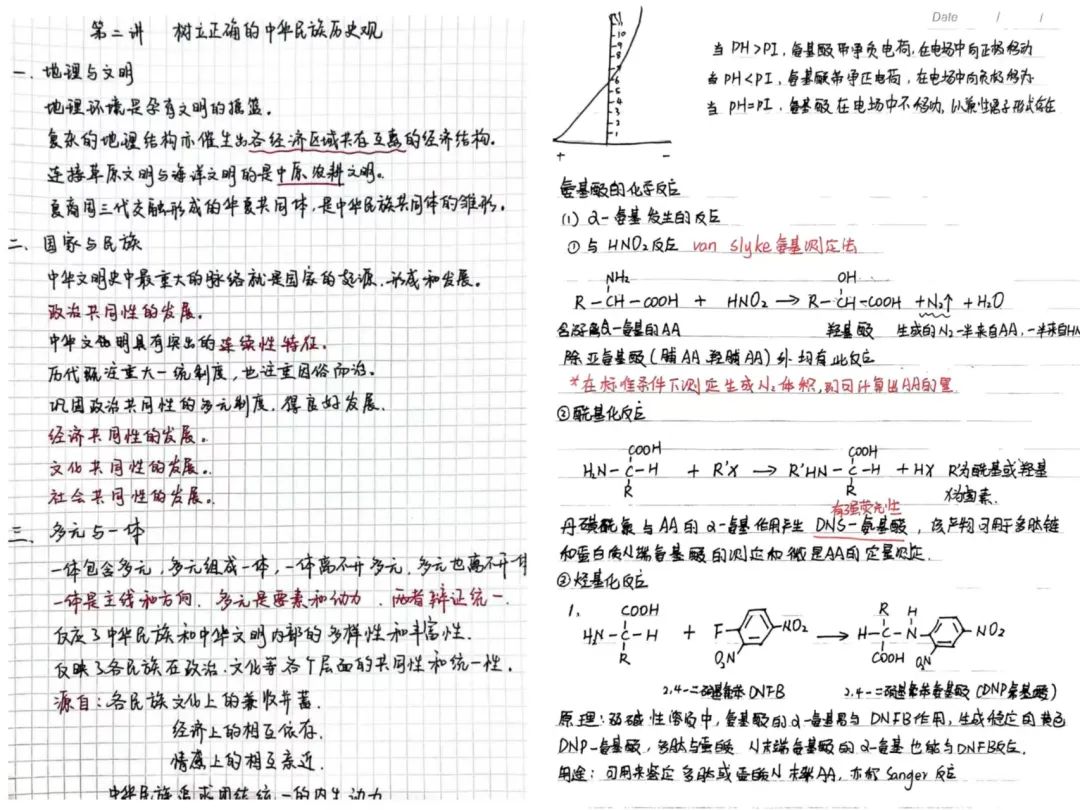 第二讲 树立正确的中华民族历史观
一、地理与文明
地理环境是孕育文明的摇篮。
复杂的地理结构亦催生出各经济区域共存互惠的经济结构。
连接草原文明与海洋文明的是中原农耕文明。
夏商周三代交融形成的华夏共同体，是中华民族共同体的雏形。
二、国家与民族
中华文明史中最重大的脉络就是国家的起源、形成和发展。
政治共同性的发展。
中华文明具有突出的连续性特征。
历代既注重大一统制度，也注重因俗而治。
巩固政治共同性的多元制度，得良好发展。
经济共同性的发展。
文化共同性的发展。
社会共同性的发展。
三、多元与一体
一体包含多元，多元组成一体，一体离不开多元，多元也离不开一体
一体是主线和方向，多元是要素和动力，两者辩证统一。
反应了中华民族和中华文明内部的多样性和丰富性。
反映了各民族在政治、文化等各个层面的共同性和统一性。
源自：各民族文化上的兼收并蓄.
经济上的相互依存.
情感上的相互亲近.
中华民族追求团结统一的内生动力
Date / /
10
9
8
7
6
5
4
3
2
1
+ −
当 PH>PI，氨基酸带净负电荷，在电场中向正极移动
当 PH<PI，氨基酸带净正电荷，在电场中向负极移动
当 PH=PI，氨基酸在电场中不移动，以兼性离子形式存在
氨基酸的化学反应
(1) α-氨基发生的反应
① 与 HNO₂反应 van slyke 氨基测定法
NH₂ OH
R-CH-COOH + HNO₂ → R-CH-COOH + N₂↑ + H₂O
α-氨基的AA 羟基酸 生成的N₂一半来自AA，一半来自HN
除亚氨基酸(脯AA 羟脯AA)外均有此反应
*在标准条件下测定生成N₂体积，即可计算出AA的量
②酰基化反应
COOH COOH
H₂N-C-H + R'X → R'HN-C-H + HX R'为酰基或羟基
R R X为卤素.
有强荧光性
丹磺酰氯与AA的α-氨基作用产生 DNS-氨基酸，该产物可用于多肽链
和蛋白质N端氨基酸的测定和微量AA的定量测定.
②烃基化反应
1.
COOH R H
H₂N-C-H + F- -NO₂ → H-C-N- -NO₂
R O₂N COOH O₂N
2,4-二硝基氟苯DNFB 2,4-二硝基苯氨基酸(DNP氨基酸)
原理：弱碱性溶液中，氨基酸的α-氨基易与DNFB作用，生成稳定的黄色
DNP-氨基酸，多肽与蛋白质N末端氨基酸的α-氨基也能与DNFB反应.
用途：可用来鉴定多肽或蛋白质N末端AA，亦称Sanger反应